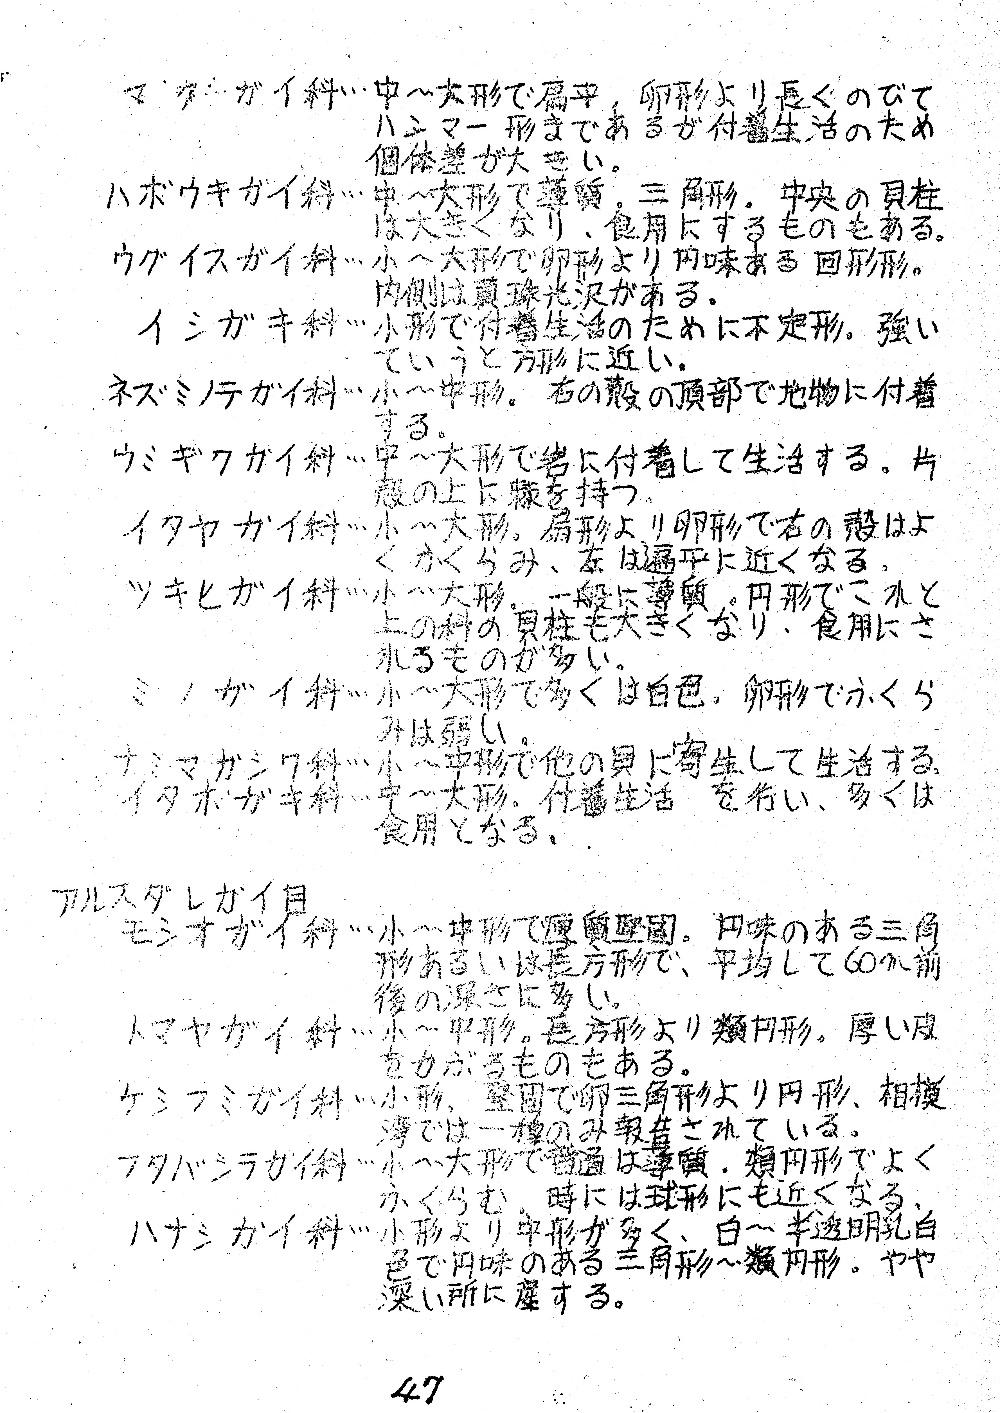 マクガイ科…中〜大形で扁平，卵形より長くのびて
ハンマー形まであるが付着生活のため
個体差が大きい。
ハボウキガイ科…中〜大形で薄質。三角形。中央の貝柱
は大きくなり、食用にするものもある。
ウグイスガイ科…小〜大形で卵形より円味ある四形形。
内側は真珠光沢がある。
イシガキ科…小形で付着生活のために不定形。強い
ていうと方形に近い。
ネズミノテガイ科…小〜中形。右の殻の頂部で地物に付着
する。
ウミギクガイ科…中〜大形で岩に付着して生活する。片
殻の上に棘を持つ。
イタヤガイ科…小〜大形。扇形より卵形で右の殻はよ
くふくらみ、左は扁平に近くなる。
ツキヒガイ科…小〜大形。一般に薄質。円形でこれと
上の科の貝柱も大きくなり、食用にさ
れるものが多い。
ミノガイ科…小〜大形で多くは白色。卵形でふくら
みは弱い。
ナミマガシワ科…小〜中形で他の貝に寄生して生活する。
イタボガキ科…中〜大形。付着生活を行い、多くは
食用となる。
アルスダレガイ目
モシオガイ科…小〜中形で厚質堅固。円味のある三角
形あるいは長方形で、平均して60m前
後の深さに多い。
トマヤガイ科…小〜中形。長方形より類円形。厚い皮
をかぶるものもある。
ケシフミガイ科…小形、堅固で卵三角形より円形、相模
湾では一種のみ報告されている。
フタバシラガイ科…小〜大形で普通は薄質。類円形でよく
ふくらむ。時には球形にも近くなる。
ハナシガイ科…小形より中形が多く、白〜半透明乳白
色で円味のある三角形〜類円形。やや
深い所に産する。
47